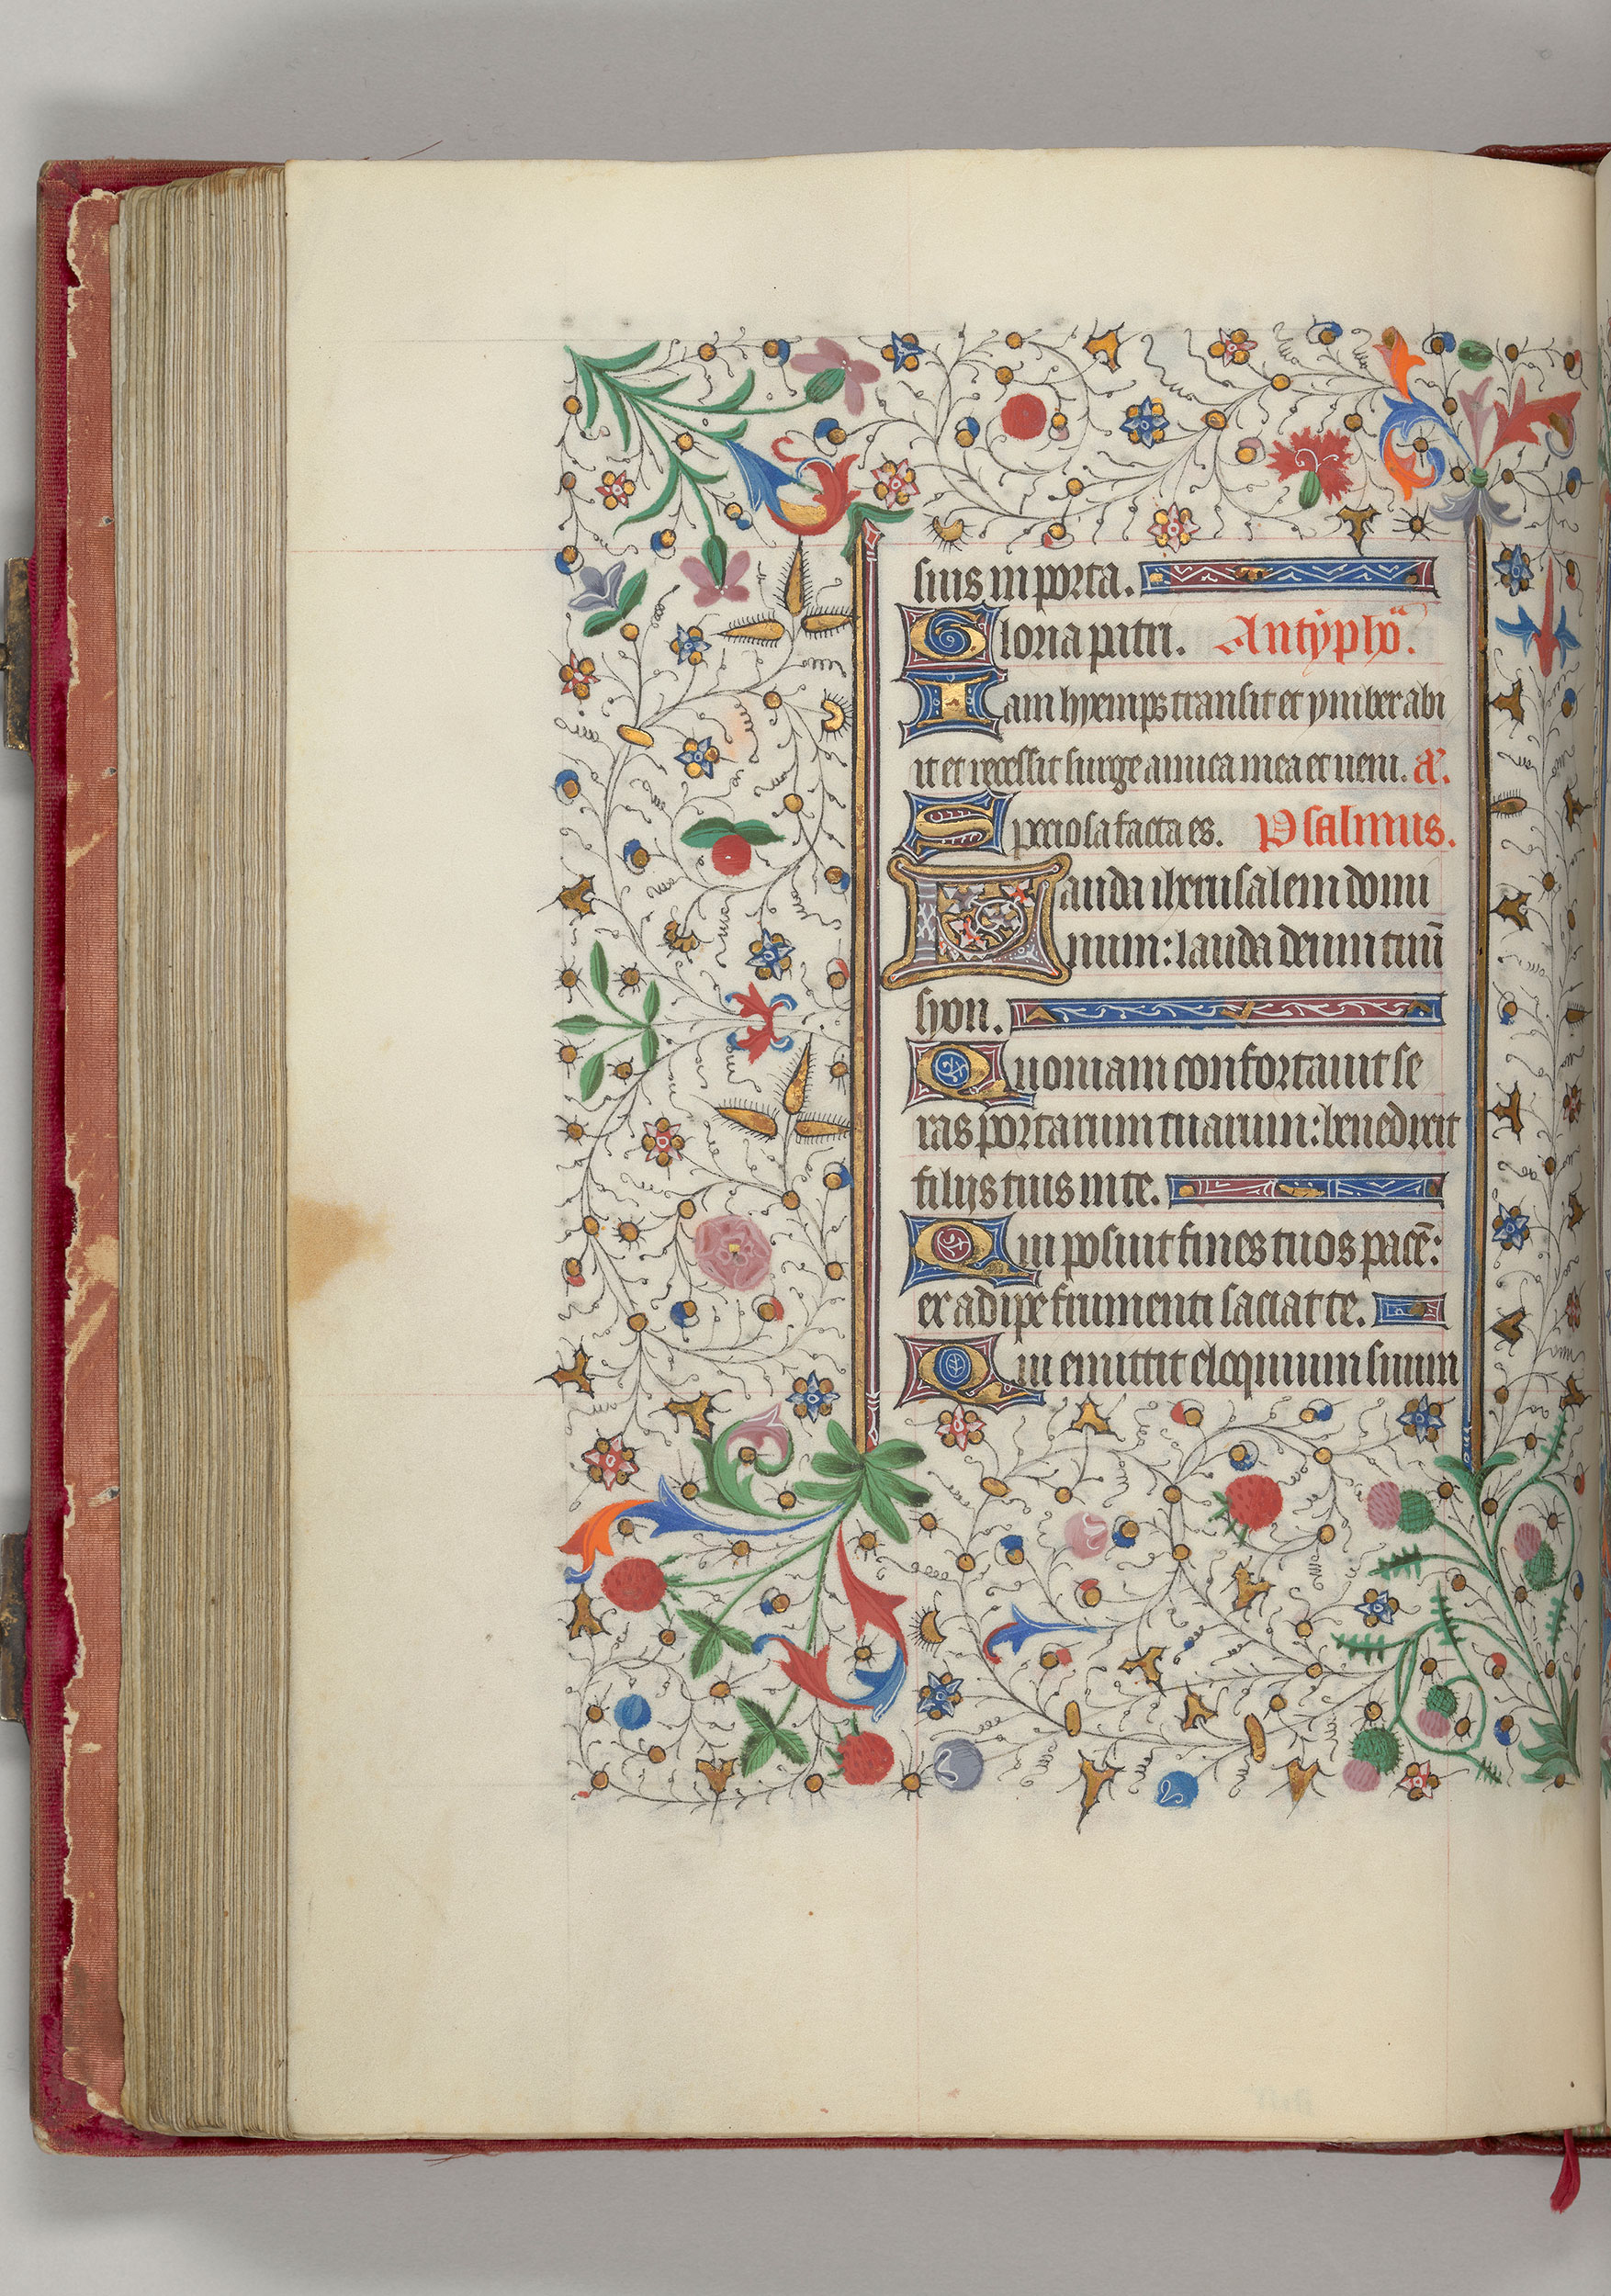 suis in porta.
Gloria patri. Antypho.
Iam hyemps transit et ymber abi
it et recessit surge amica mea et ueni. a.
Speciosa facta es. Psalmus.
Lauda iherusalem domi
num: lauda deum tuū
syon.
Quoniam confortauit se
ras portarum tuarum: benedixit
filijs tuis in te.
Qui posuit fines tuos pacē:
et adipe frumenti saciat te.
Qui emittit eloquium suum